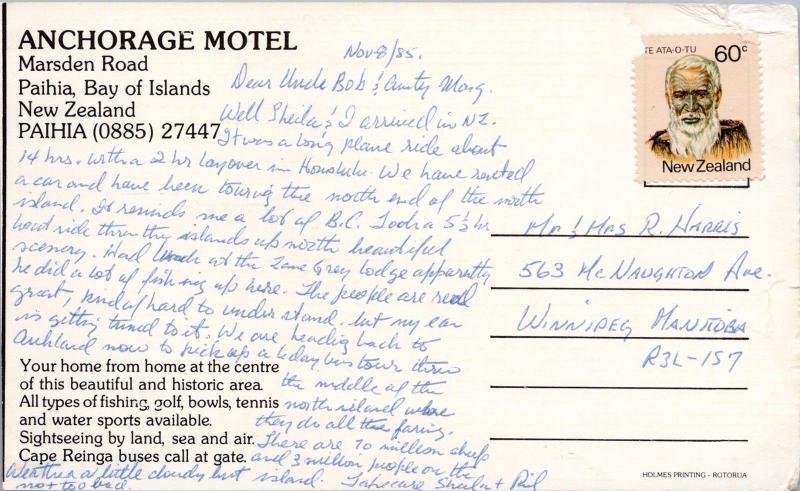 ANCHORAGE MOTEL
Marsden Road
Paihia, Bay of Islands
New Zealand
PAIHIA (0885) 27447
TE ATA-O-TU 60c
New Zealand
Nov 8/85.
Dear Uncle Bob & Aunty Marg.
Well Sheila & I arrived in N.Z.
It was a long plane ride about
14 hrs. with a 2 hr layover in Honolulu. We have rented
a car and have been touring the north end of the north
island. It reminds me a lot of B.C. Took a 5½ hr
boat ride thru the islands up north beautiful
scenery. Had lunch at the Zane Grey lodge apparently
he did a lot of fishing up here. The people are real
great, kind of hard to understand. but my ear
is getting tuned to it. We are heading back to
Auckland now to pick up a 6 day bus tour thru
the middle of the
north island where
they do all the farming.
There are 70 million sheep
and 3 million people on the
island. Take care Sheila & Phil
Weather a little cloudy but
not too bad.
Your home from home at the centre
of this beautiful and historic area.
All types of fishing, golf, bowls, tennis
and water sports available.
Sightseeing by land, sea and air.
Cape Reinga buses call at gate.
Mr & Mrs R. Harris
563 McNaughton Ave.
Winnipeg Manitoba
R3L-1S7
HOLMES PRINTING - ROTORUA